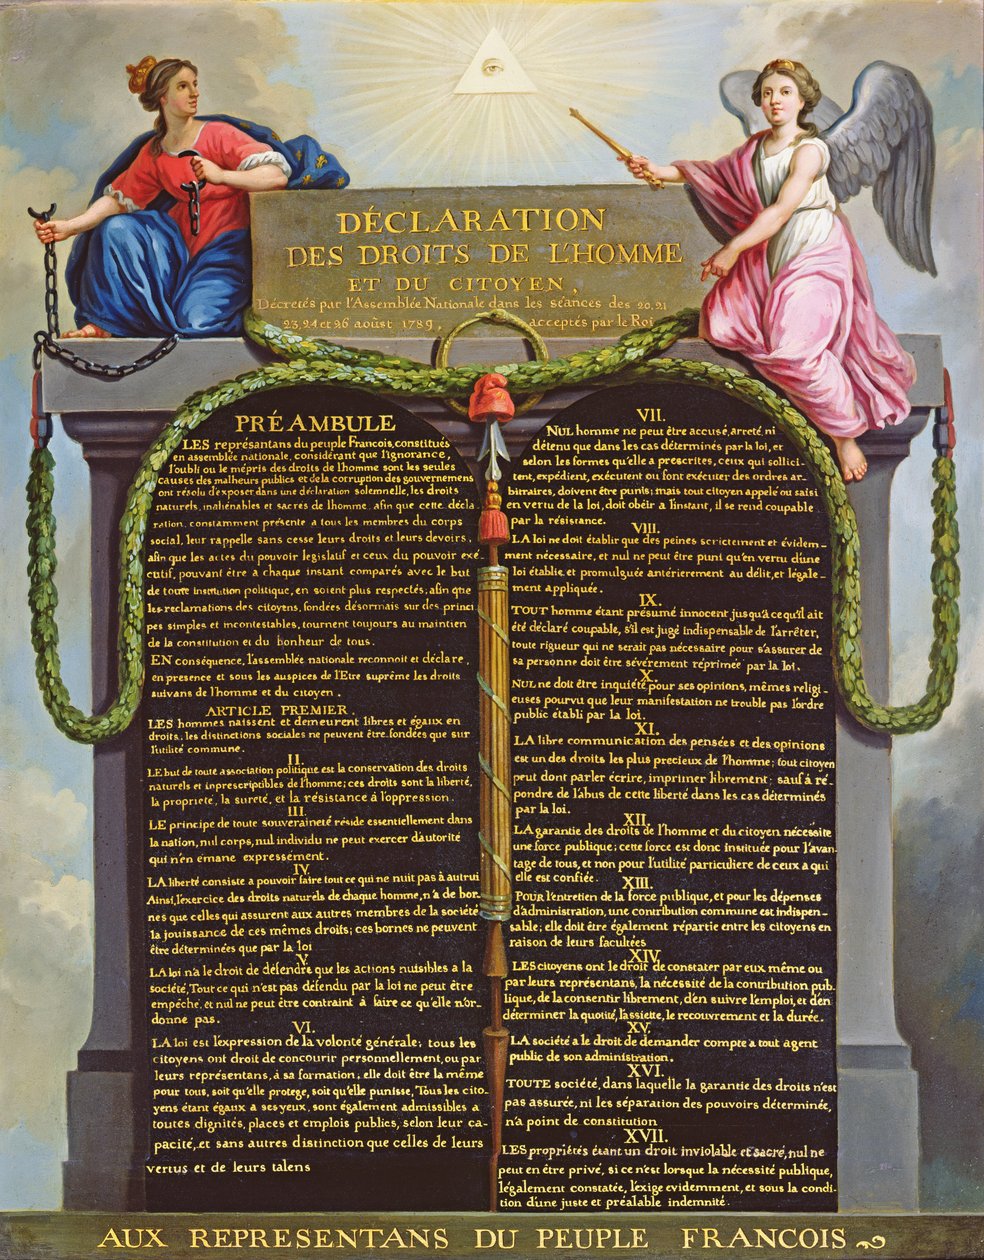 DÉCLARATION
DES DROITS DE L'HOMME
ET DU CITOYEN,
Décretés par l'Assemblée Nationale dans les séances des 20, 21
23, 24 et 26 aoûst 1789, acceptés par le Roi
PRÉAMBULE
LES représantans du peuple Francois, constitués
en assemblée nationale, considérant que l'ignorance,
l'oubli ou le mépris des droits de l'homme sont les seules
causes des malheurs publics et de la corruption des gouvernemens
ont résolu d'exposer dans une déclaration solemnelle, les droits
naturels, inaliénables et sacrés de l'homme, afin que cette décla
ration, constamment présente a tous les membres du corps
social, leur rappelle sans cesse leurs droits et leurs devoirs,
afin que les actes du pouvoir legislatif et ceux du pouvoir exé-
cutif, pouvant être a chaque instant comparés avec le but
de toute institution politique, en soient plus respectés; afin que
les reclamations des citoyens, fondées désormais sur des princi
pes simples et incontestables, tournent toujours au maintien
de la constitution et du bonheur de tous.
EN conséquence, l'assemblée nationale reconnoit et déclare,
en presence et sous les auspices de l'Etre suprême les droits
suivans de l'homme et du citoyen.
ARTICLE PREMIER.
LES hommes naissent et demeurent libres et égaux en
droits, les distinctions sociales ne peuvent être fondées que sur
l'utilité commune.
II.
LE but de toute association politique est la conservation des droits
naturels et inprescriptibles de l'homme; ces droits sont la liberté,
la propriété, la sureté, et la résistance à l'oppression.
III.
LE principe de toute souveraineté réside essentiellement dans
la nation, nul corps, nul individu ne peut exercer d'autorité
qui n'en émane expressément.
IV.
LA liberté consiste a pouvoir faire tout ce qui ne nuit pas à autrui
Ainsi, l'exercice des droits naturels de chaque homme, n'a de bor-
nes que celles qui assurent aux autres membres de la société
la jouissance de ces mêmes droits; ces bornes ne peuvent
être déterminées que par la loi
V.
LA loi n'a le droit de défendre que les actions nuisibles a la
société, Tout ce qui n'est pas défendu par la loi ne peut être
empêché, et nul ne peut être contraint à faire ce qu'elle n'or-
donne pas.
VI.
LA loi est l'expression de la volonté générale; tous les
citoyens ont droit de concourir personnellement, ou par
leurs représentans, à sa formation; elle doit être la même
pour tous, soit qu'elle protege, soit qu'elle punisse, Tous les cito-
yens étant égaux a ses yeux, sont également admissibles a
toutes dignités, places et emplois publics, selon leur ca-
pacité, et sans autres distinction que celles de leurs
vertus et de leurs talens
VII.
NUL homme ne peut être accusé, arreté, ni
détenu que dans les cas déterminés par la loi, et
selon les formes qu'elle a prescrites, ceux qui sollici-
tent, expédient, exécutent ou font exécuter des ordres ar-
bitraires, doivent être punis; mais tout citoyen appelé ou saisi
en vertu de la loi, doit obéir a l'instant, il se rend coupable
par la résistance.
VIII.
LA loi ne doit établir que des peines strictement et évidem-
ment nécessaire, et nul ne peut être puni qu'en vertu d'une
loi établie, et promulguée antérierement au délit, et légale-
ment appliquée.
IX.
TOUT homme étant présumé innocent jusqu'a ce qu'il ait
été déclaré coupable, s'il est jugé indispensable de l'arrêter,
toute rigueur qui ne serait pas nécessaire pour s'assurer de
sa personne doit être sévérement réprimée par la loi.
X.
NUL ne doit être inquiété pour ses opinions, mêmes religi-
euses pourvu que leur manifestation ne trouble pas l'ordre
public établi par la loi.
XI.
LA libre communication des pensées et des opinions
est un des droits les plus precieux de l'homme; tout citoyen
peut dont parler écrire, imprimer librement; sauf à ré-
pondre de l'abus de cette liberté dans les cas déterminés
par la loi.
XII.
LA garantie des droits de l'homme et du citoyen nécessite
une force publique; cette force est donc instituée pour l'avan
tage de tous, et non pour l'utilité particuliere de ceux a qui
elle est confiée.
XIII.
POUR l'entretien de la force publique, et pour les dépenses
d'administration, une contribution commune est indispen-
sable; elle doit être également répartie entre les citoyens en
raison de leurs facultées
XIV.
LES citoyens ont le droit de constater par eux même ou
par leurs représentans, la nécessité de la contribution pub-
lique, de la consentir librement, d'en suivre l'emploi, et d'en
déterminer la quotité, l'assiette, le recouvrement et la durée.
XV.
LA société a le droit de demander compte a tout agent
public de son administration.
XVI.
TOUTE société, dans laquelle la garantie des droits n'est
pas assurée, ni les séparation des pouvoirs déterminée,
n'a point de constitution
XVII.
LES propriétés étant un droit inviolable et sacré, nul ne
peut en être privé, si ce n'est lorsque la nécessité publique,
légalement constatée, l'exige evidemment, et sous la condi-
tion d'une juste et préalable indemnité.
AUX REPRESENTANS DU PEUPLE FRANCOIS